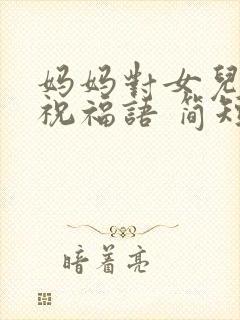 妈妈對女兒
祝福語 简短
暗着亮